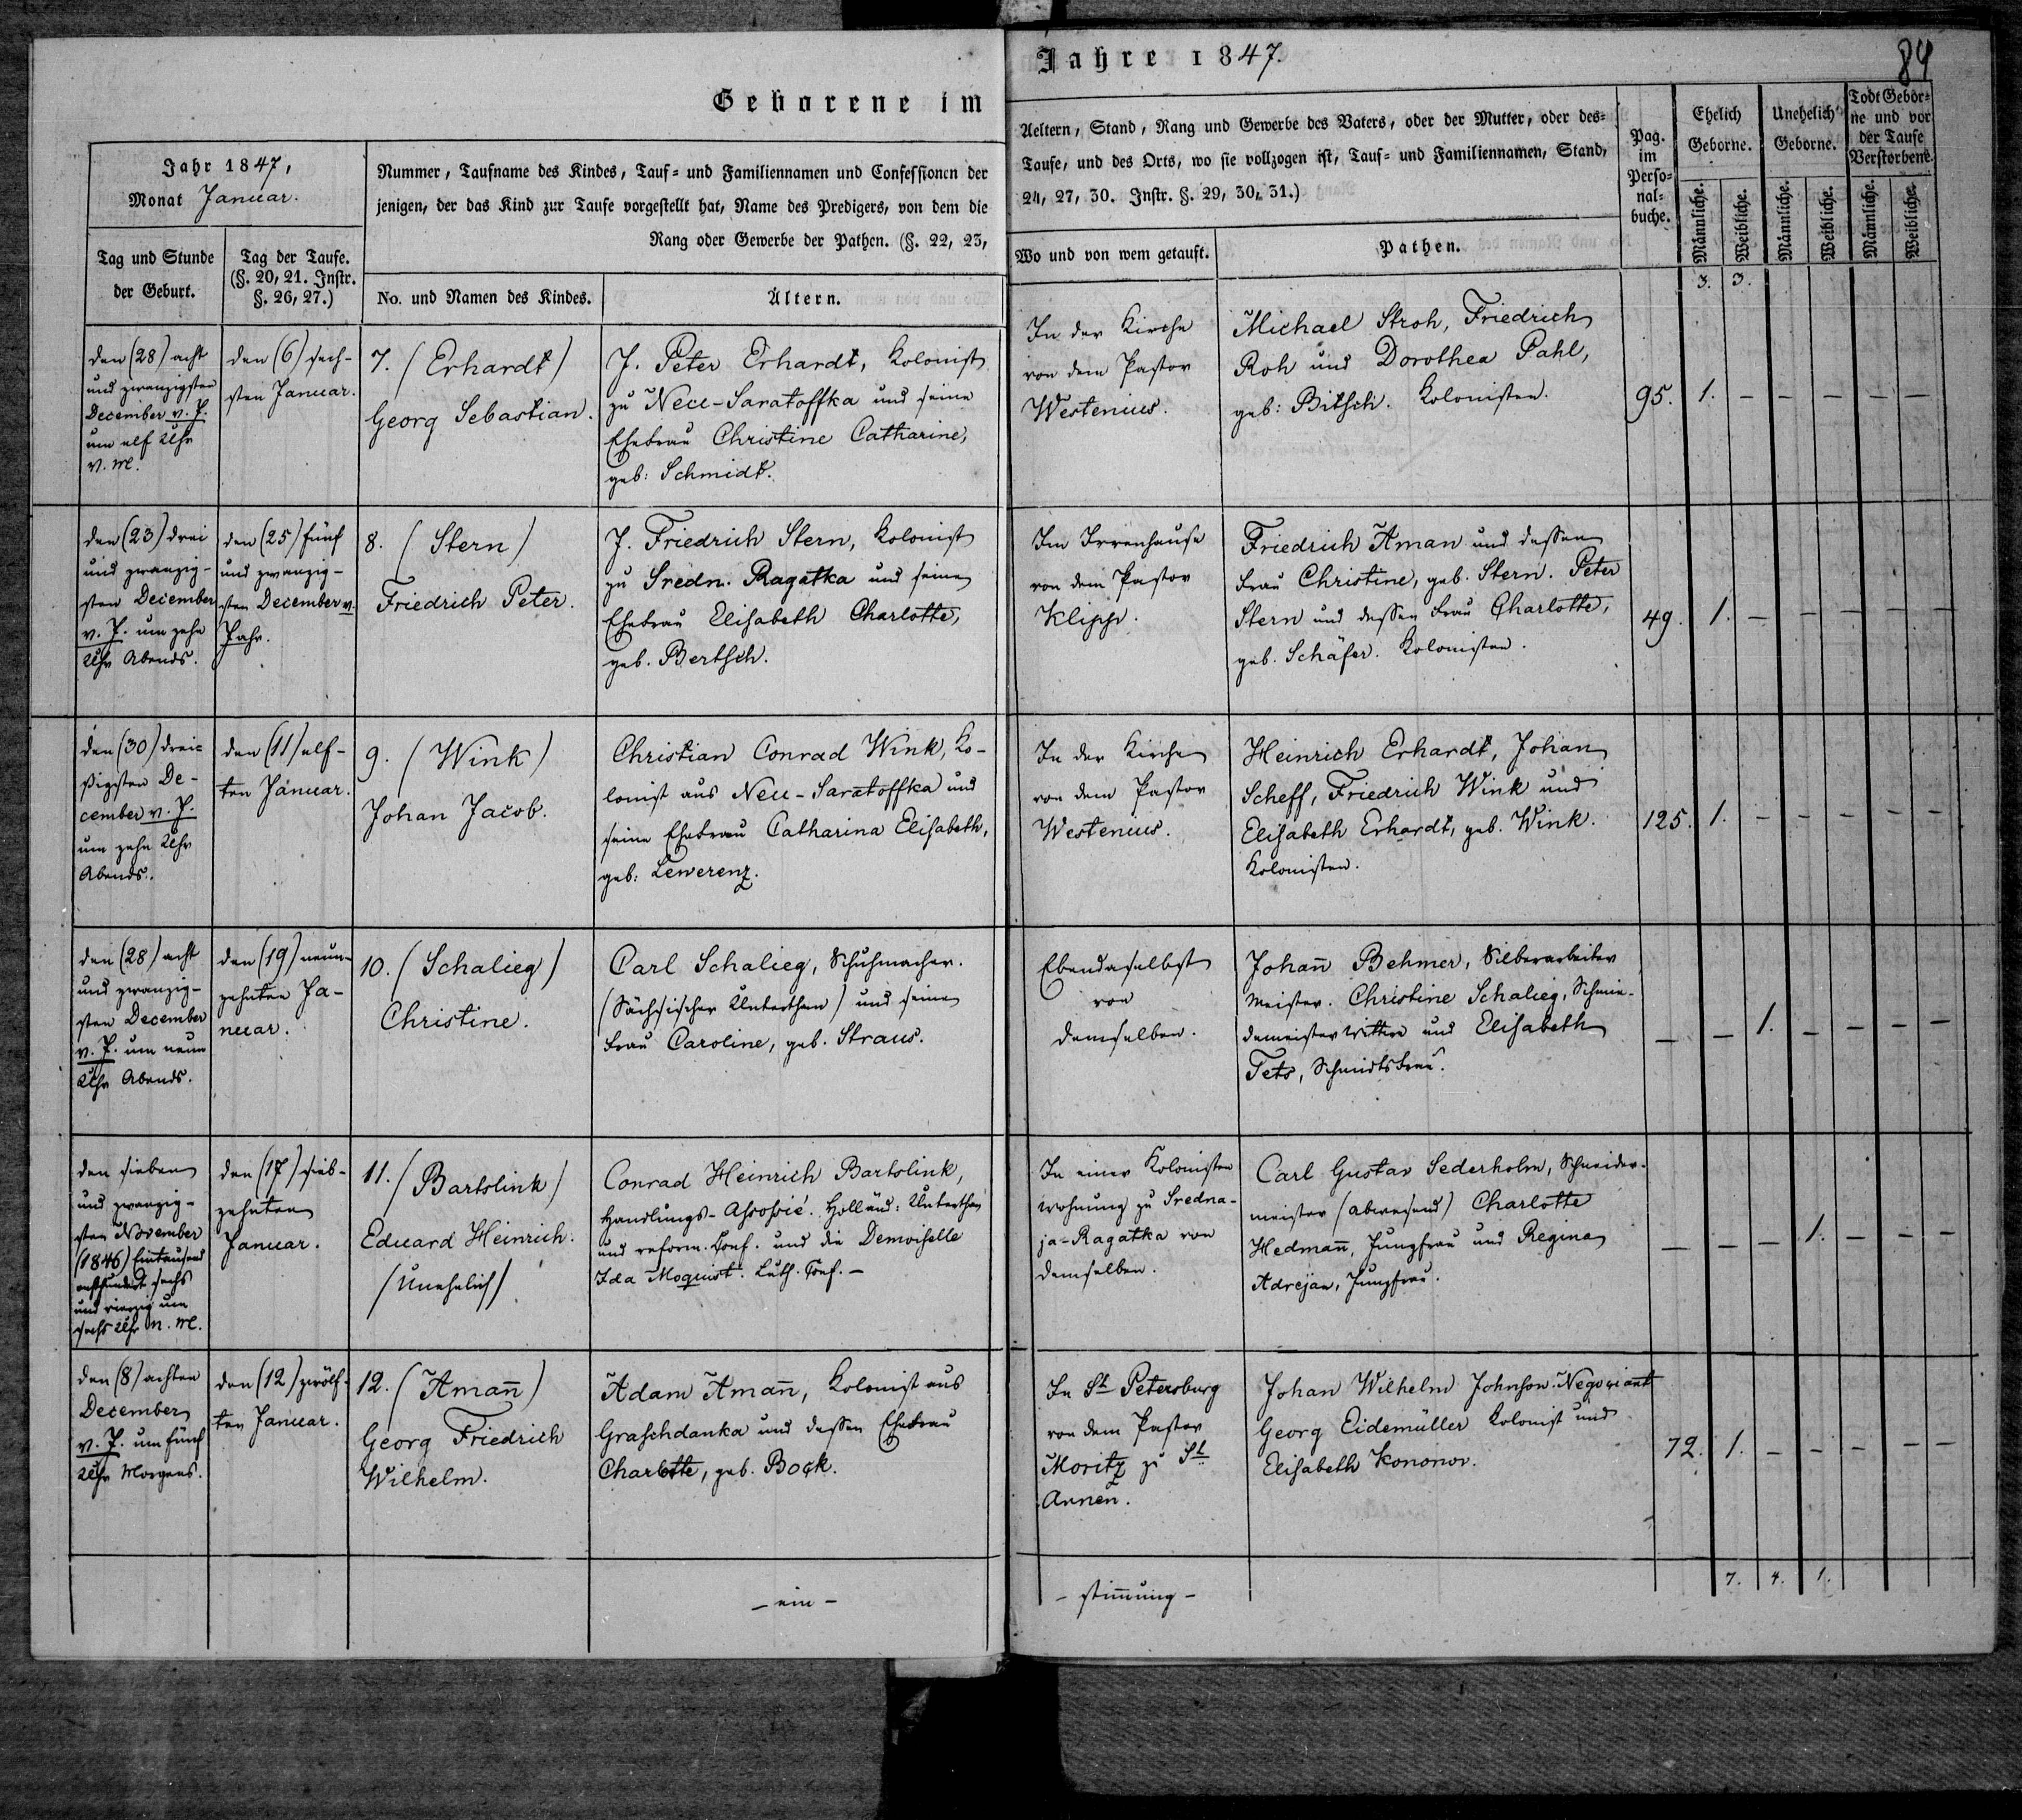 Geborene im
Jahre 1847.
84
Jahr 1847,
Monat Januar.
Tag und Stunde
der Geburt.
Tag der Taufe.
(§. 20, 21. Instr.
§. 26, 27.)
Nummer, Taufname des Kindes, Tauf- und Familiennamen und Confessionen der
jenigen, der das Kind zur Taufe vorgestellt hat, Name des Predigers, von dem die
Rang oder Gewerbe der Pathen. (§. 22, 23,
No. und Namen des Kindes.
Ältern.
Aeltern, Stand, Rang und Gewerbe des Vaters, oder der Mutter, oder des-
Taufe, und des Orts, wo sie vollzogen ist, Tauf- und Familiennamen, Stand,
24, 27, 30. Instr. §. 29, 30, 31.)
Wo und von wem getauft.
Pathen.
Pag.
im
Perso-
nal-
buche.
Ehelich
Geborne.
Unehelich
Geborne.
Todt Gebor-
ne und vor
der Taufe
Verstorbene.
Männliche.
Weibliche.
Männliche.
Weibliche.
Männliche.
Weibliche.
3. 3.
den (28) acht
und zwanzigsten
December v. J.
um elf Uhr
V. M.
den (6) sech-
sten Januar.
7. (Erhardt)
Georg Sebastian.
J. Peter Erhardt, Kolonist
zu Neu-Saratoffka und seine
Ehefrau Christine Catharine,
geb: Schmidt.
In der Kirche
von dem Pastor
Westenius.
Michael Stroh, Friedrich
Roh und Dorothea Pahl,
geb: Bitsch. Kolonisten.
95. 1. – – – – –
den (23) drei
und zwanzig-
sten December
v. J. um zehn
Uhr Abends.
den (25) fünf
und zwanzig-
sten December v.
Jahr.
8. (Stern)
Friedrich Peter.
J. Friedrich Stern, Kolonist
zu Sredn. Ragatka und seine
Ehefrau Elisabeth Charlotte,
geb. Bertsch.
Im Irrenhause
von dem Pastor
Klipp.
Friedrich Aman und dessen
Frau Christine, geb. Stern. Peter
Stern und dessen Frau Charlotte,
geb. Schäfer. Kolonisten.
49. 1. – – – – –
den (30) drei-
ßigsten De-
cember v. J.
um zehn Uhr
Abends.
den (11) elf-
ten Januar.
9. (Wink)
Johan Jacob.
Christian Conrad Wink, Ko-
lonist aus Neu-Saratoffka und
seine Ehefrau Catharina Elisabeth,
geb: Lewerenz.
In der Kirche
von dem Pastor
Westenius.
Heinrich Erhardt, Johan
Scheff, Friedrich Wink und
Elisabeth Erhardt, geb. Wink.
Kolonisten.
125. 1. – – – – –
den (28) acht
und zwanzig-
sten December
v. J. um neun
Uhr Abends.
den (19) neun-
zehnten Ja-
nuar.
10. (Schalieg)
Christine.
Carl Schalieg, Schuhmacher.
(Sächsischer Unterthan) und seine
Frau Caroline, geb. Straus.
Ebendaselbst
von
demselben.
Johan̄ Behmer, Silberarbeiter
Meister. Christine Schalieg, Schmie-
demeister Wittwe und Elisabeth
Tets, Schmidtsfrau.
– – 1. – – – –
den sieben
und zwanzig-
sten November
(1846) Eintausend
achthundert sechs
und vierzig um
sechs Uhr N. M.
den (17) sieb-
zehnten
Januar.
11. (Bartolink)
Eduard Heinrich.
(Unehelich)
Conrad Heinrich Bartolink,
Handlungs-Associé. Holländ: Unterthan
und reform. Conf. und die Demoiselle
Ida Moquist. Luth. Conf. –
In einer Kolonisten
wohnung zu Sredna-
ja-Ragatka von
demselben.
Carl Gustav Sederholm, Schneider-
meister (abwesend) Charlotte
Hedman̄, Jungfrau und Regina
Adrejan, Jungfrau.
– – – 1. – – –
den (8) achten
December
v. J. um fünf
Uhr Morgens.
den (12) zwölf-
ten Januar.
12. (Aman̄)
Georg Friedrich
Wilhelm.
Adam Aman̄, Kolonist aus
Graschdanka und dessen Ehefrau
Charlotte, geb. Bock.
In St. Petersburg
von dem Pastor
Moritz zu St.
Annen.
Johan Wilhelm Johnson. Negociant
Georg Eidemüller Kolonist und
Elisabeth Kononov.
72. 1. – – – – –
– ein –
– stim̄ung –
7. 4. 1.